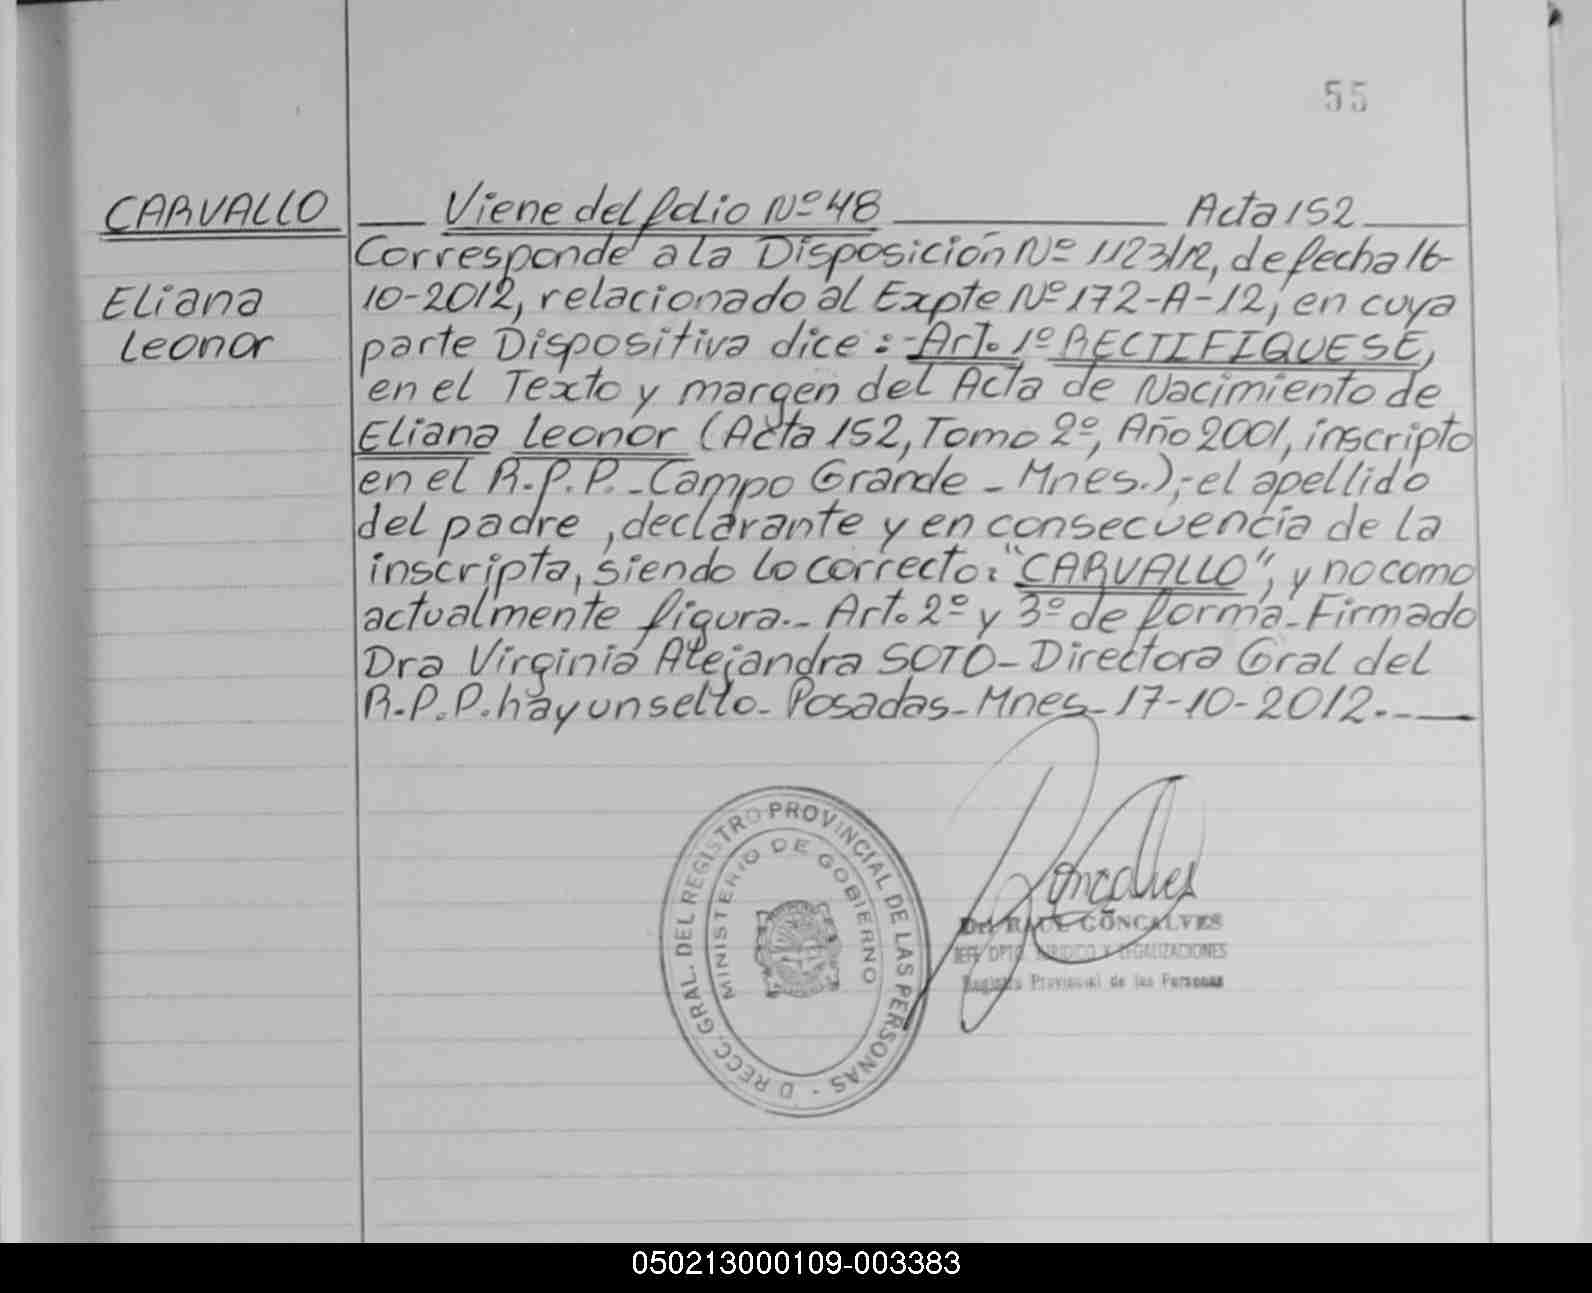 55
CARVALLO
Eliana
Leonor
Viene del folio Nº 48 Acta 152
Corresponde a la Disposición Nº 1123/12, de fecha 16-
10-2012, relacionado al Expte Nº 172-A-12, en cuya
parte Dispositiva dice:-Art. 1º RECTIFIQUESE,
en el Texto y margen del Acta de Nacimiento de
Eliana Leonor (Acta 152, Tomo 2º, Año 2001, inscripto
en el R.P.P.-Campo Grande - Mnes.);-el apellido
del padre, declarante y en consecuencia de la
inscripta, siendo lo correcto: "CARVALLO", y no como
actualmente figura.- Art. 2º y 3º de forma-Firmado
Dra Virginia Alejandra SOTO-Directora Gral del
R.P.P. hay un sello- Posadas-Mnes-17-10-2012.-
DIRECC. GRAL. DEL REGISTRO PROVINCIAL DE LAS PERSONAS -
MINISTERIO DE GOBIERNO
Goncalves
Dr. RAUL GONCALVES
JEFE DPTO. JURIDICO Y LEGALIZACIONES
Registro Provincial de las Personas
050213000109-003383